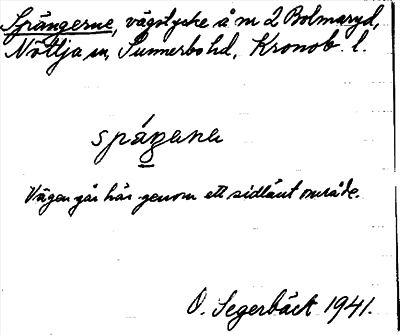 Sprängerne, vägstycke å m 2 Bolmaryd,
Nöttja sn, Sunnerbo hd, Kronob. l.
spáŋana
Vägen går här genom ett sidlänt område.
O. Segerbäck 1941.